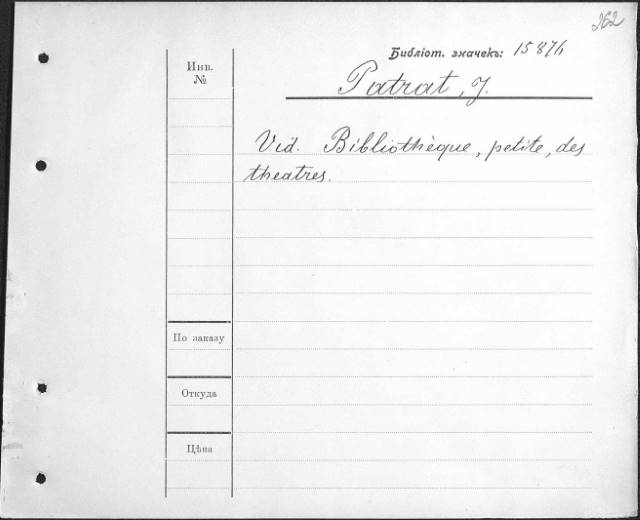 262
Библіот. значекъ: 15876
Инв.
№
Patrat, J.
Vid. Bibliothèque, petite, des
theatres.
По заказу
Откуда
Цѣна